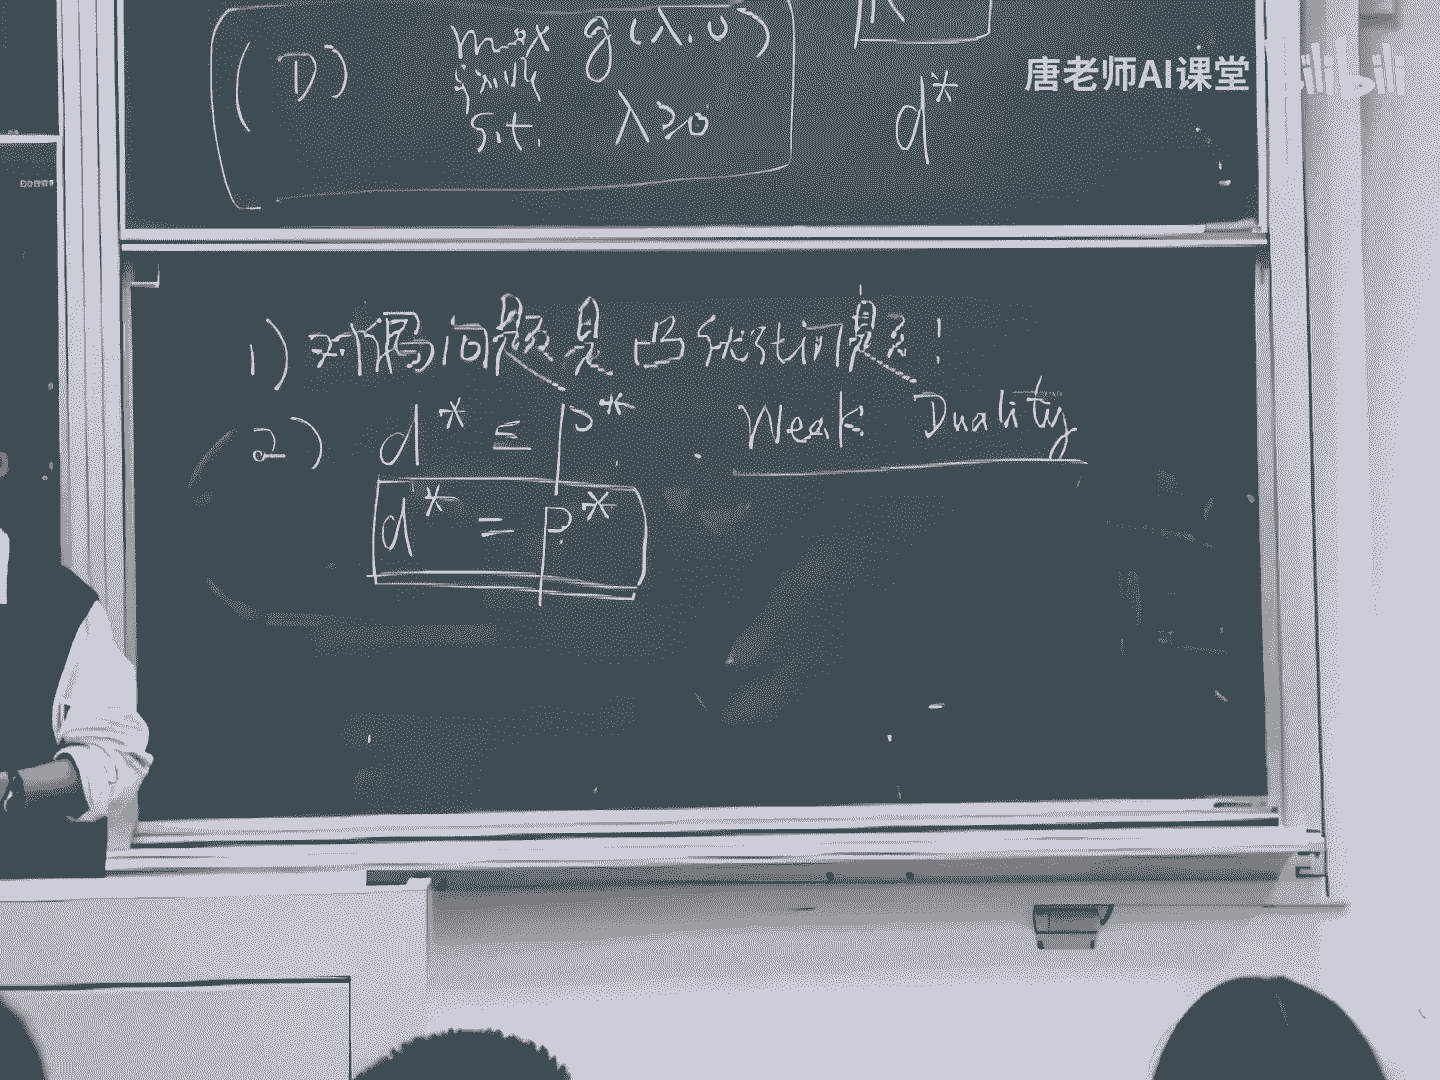 (D) max g(λ,υ)
s.t. λ≥0
d*
唐老师AI课堂 bilibili
1) 对偶问题是凸优化问题!
2) d* ≤ P* . Weak Duality
d* = P*